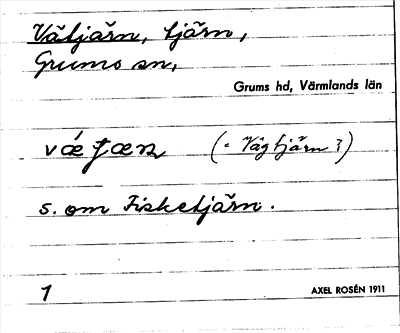 Vätjärn, tjärn,
Grums sn,
Grums hd, Värmlands län
(= Vägtjärn?)
s. om Fisketjärn.
1 AXEL ROSÉN 1911